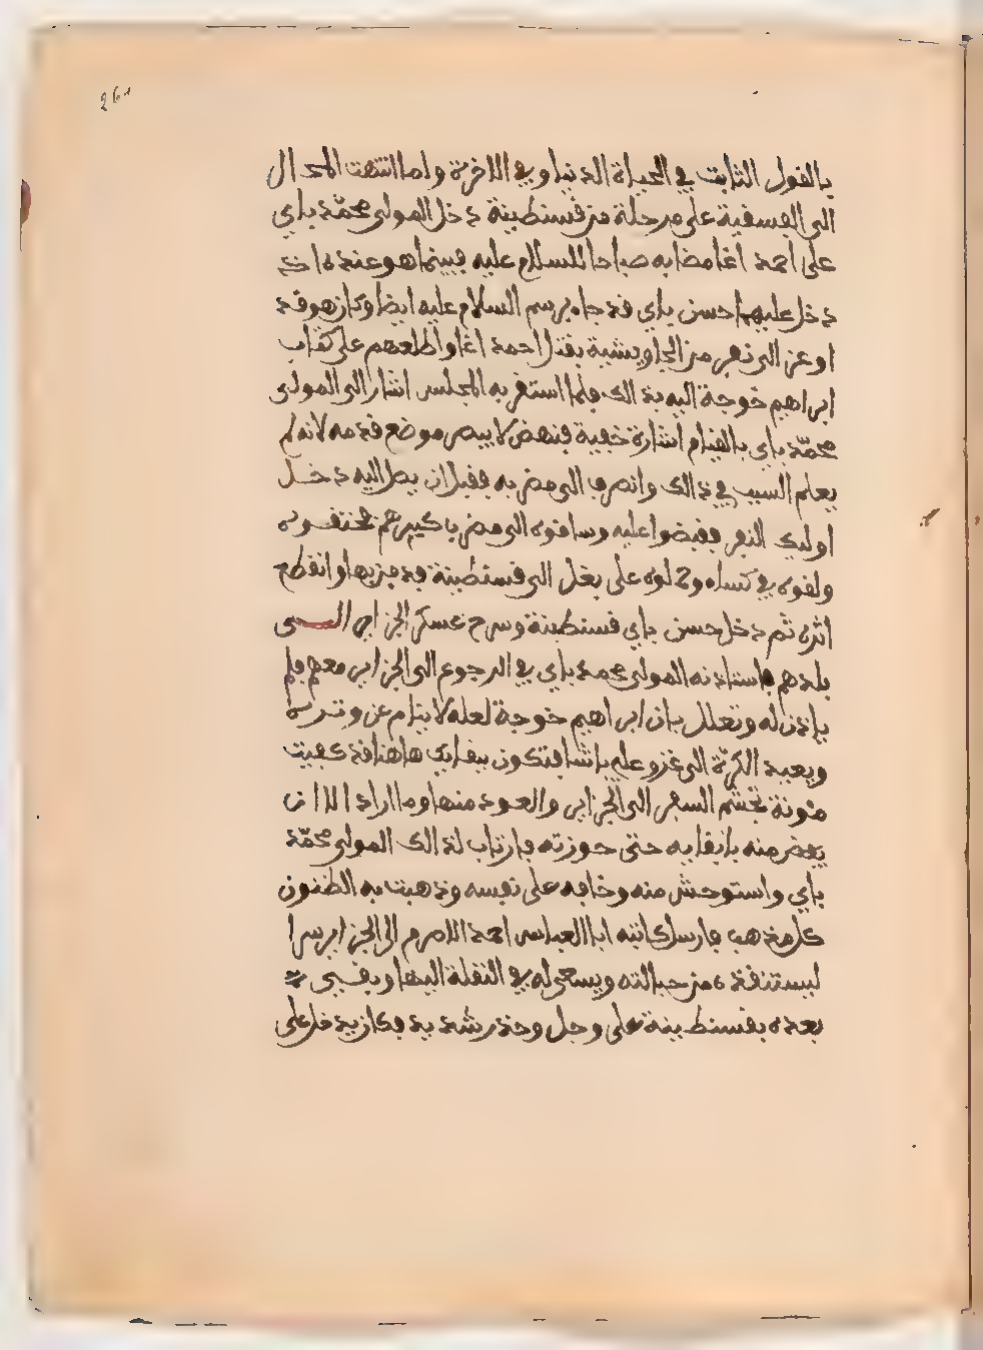 261
بالقول الثابت في الحياة الدنيا وفي الاخرة ولما انتهت المحال
الى الفسقية على مرحلة من قسنطينة دخل المولى محمد باي
على احمد اغا مضاربه صباحا للسلام عليه فبينما هو عنده اذ
دخل عليهما حسن باي قد جاء برسم السلام عليه ايضا وكان هو قد
اوعز الى نفر من الجاويشية بقتل احمد اغا واطلعهم على كتاب
ابراهيم خوجة اليه بذالك فلما استقر به المجلس اشار الى المولى
محمد باي بالقيام اشارة خفية فنهض لا يبصر موضع قدمه لانه لم
يعلم السبب في ذالك وانصرف الى مضربه فقبل ان يصل اليه دخل
اوليك النفر فقبضوا عليه وساقوه الى مضرب كبيرهم فخنقوه
ولفوه في كساء وحملوه على بغل الى قسنطينة فدفن بها وانقطع
اثره ثم دخل حسن باي قسنطينة وسرح عسكر الجزاير الى
بلدهم فاستاذنه المولى محمد باي في الرجوع الى الجزاير معهم فلم
ياذن له وتعلل بان ابراهيم خوجة لعله لا ينام عن وتره
ويعيد الكرة الى غزو علي باشا فتكون ببقايك هاهنا قد كفيت
مئونة تجشم السفر الى الجزاير والعود منها وما اراد الا ان
يغض منه بابقايه حتى حوزته فارتاب لذالك المولى محمد
باي واستوحش منه وخافه على نفسه وذهبت به الظنون
كل مذهب فارسل كاتبه ابا العباس احمد الاصرم الى الجزاير سرا
ليستنقذه من حبالته ويسعى له في النقلة اليها وبقي
بعده بقسنطينة على وجل وحذر شديد فكان يدخل على